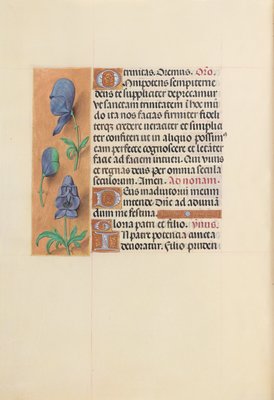 trinitas. Oremus. Oro.
Omnipotens sempiterne
deus te suppliciter deprecamur
ut sanctam trinitatem i hoc mū
do ita nos facias firmiter fide
terq; credere veraciter et simplici
ter confiteri ut in aliquo possim9
eam perfecte cognoscere et letāter
facie ad faciem videre. Qui vivis
et regnas deus per omnia secula
seculorum. Amen. Ad nonam.
Deus in adiutoriū meum
intende. Dn̄e ad adiuuā
dum me festina.
Gloria patri et filio. ymus.
In patre potencia aucta
Deuoratur. Filio pruden